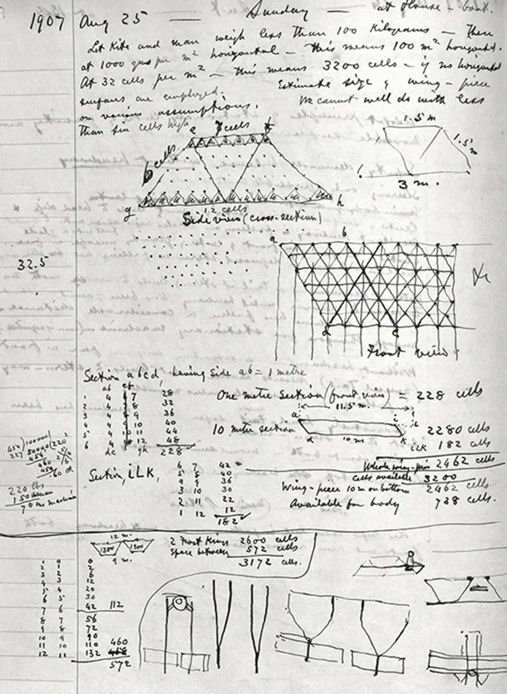 1907 Aug 25 — Sunday — at House — bank.
Let Kite and man weigh less than 100 Kilograms — Then
at 1000 gms per m² horizontal — this means 100 m² horizontal.
At 32 cells per m² — this means 3200 cells — if no horizontal
surfaces are employed. Estimate size of wing-piece
on various assumptions. We cannot well do with less
than six cells high.
e 7 cells f
6 cells
g 12 cells h
Side view (cross-section)
1.5 m
1.5 m
3 m.
32.5
a b
d c
Front view
Section abcd, having side ab = 1 metre
ab ef
1 4 7 28
2 4 8 32
3 4 9 36
4 4 10 40
5 4 11 44
6 4 12 48
dc gh 228
One metre section (front view) = 228 cells
11.5 m.
a i
10 metre section
d 10 m. k
2280 cells
ilk 182 cells
Whole wing-piece 2462 cells
cells available 3200
Wing-piece 10 m on bottom 2462 cells
Available for body 738 cells.
Section, ilk,
6 7 42
5 8 40
4 9 36
3 10 30
2 11 22
1 12 12
182
220 lbs
150
70 lbs machine
12 m.
1300 1300
9 m.
2 Front Wings 2600 cells
Space between 572 cells
3172 cells.
1 0 0
2 1 2
3 2 6
4 3 12
5 4 20
6 5 30
7 6 42 112
8 7 56
9 8 72
10 9 90
11 10 110 460
12 11 132
572